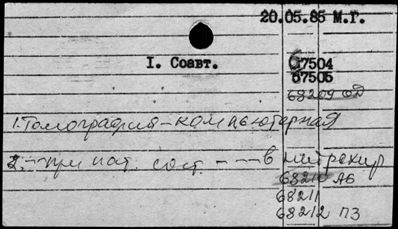 20.05.85 М.Г.
I. Соавт.
67504
67505
68209 ОД
1. Томография - компьютерная
2. -- при пат. сост. --- в нейрохир
68210 АБ
68211
68212 ПЗ